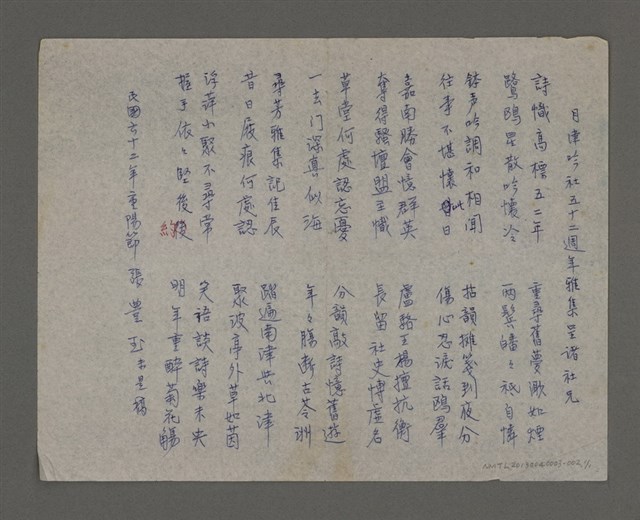 月津吟社五十二週年雅集呈諸社兄
詩幟高標五二年　重尋舊夢渺如煙
鷺鷗星散吟懷冷　兩鬢皤々祗自憐
鉢声吟調和相聞　拈韻攤箋到夜分
往事不堪懷此日　傷心忍淚話鷗羣
嘉南勝會憶群英　盧駱王楊擅抗衡
奪得騷壇盟主幟　長留社史博虛名
草堂何處認忘憂　分韻敲詩憶舊遊
一去门深真似海　年々腸斷古苓洲
尋芳雅集記佳辰　躍遍南津共北津
昔日屐痕何處認　聚波亭外草如茵
浮萍小聚不尋常　笑語談詩樂未央
握手依々堅後　明年重醉菊花觴
約
民國六十二年重陽節 張豊玉未是稿